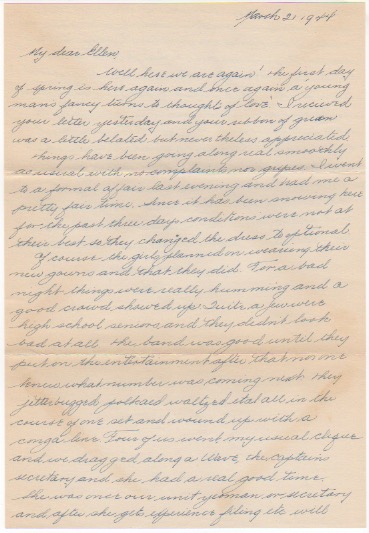 March 21 1944
My dear Ellen,
Well here we are again! The first day
of spring is here again and once again a young
mans fancy turns to thoughts of love - I received
your letter yesterday and your ribbon of green
was a little belated but nevertheless appreciated
Things have been going along real smoothly
as usual with no complaints nor gripes. I went
to a formal affair last evening and had me a
pretty fair time. Since it has been snowing here
for the past three days conditions were not at
their best so they changed the dress to optional
Of course the girls planned on wearing their
new gowns and that they did. For a bad
night things were really humming and a
good crowd showed up. Quite a few were
high school seniors and they didn't look
bad at all. The band was good until they
put on the entertainment after that no one
knew what number was coming next. They
jitterbugged, polkaed waltzed et al all in the
course of one set and wound up with a
conga line. Four of us went my usual clique
and we dragged along a Wave, the captains
secretary and she had a real good time.
She was once our unit yeoman or secretary
and after she gets experience filing etc will